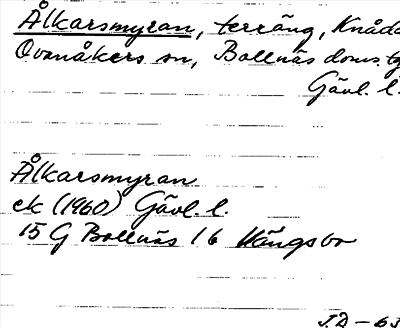 Ålkarsmyran, terräng, Knåda
Ovanåkers sn, Bollnäs doms. tg
Gävl. l.
Ålkarsmyran
ek (1960) Gävl. l.
15 G Bollnäs 1 b Vängsbo
J.D – 63